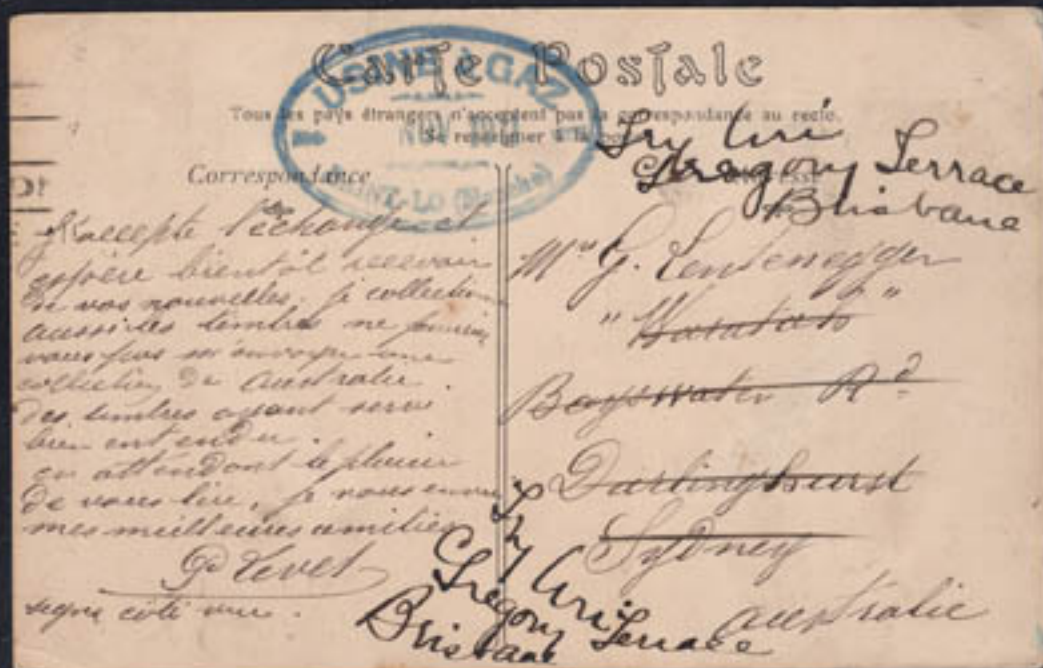 Carte Postale
Tous les pays étrangers n'acceptent pas la correspondance au recto.
Se renseigner à la
USINE À GAZ
SAINT-LO (Manche)
Correspondance
J'accepte l'échange et
espère bientôt recevoir
de vos nouvelles. je collectionne
aussi les timbres ne
vous pas m'envoyer une
collection de Australie.
des timbres ayant servi
bien entendu.
en attendant le plaisir
de vous lire, je vous envoie
mes meilleures amitiés
Levet
côté vue.
Try
Gregory Terrace
Brisbane
Mr G.
" "
Bayswater Rd
Darlinghurst
Sydney
Australie
Try
Gregory Terrace
Brisbane